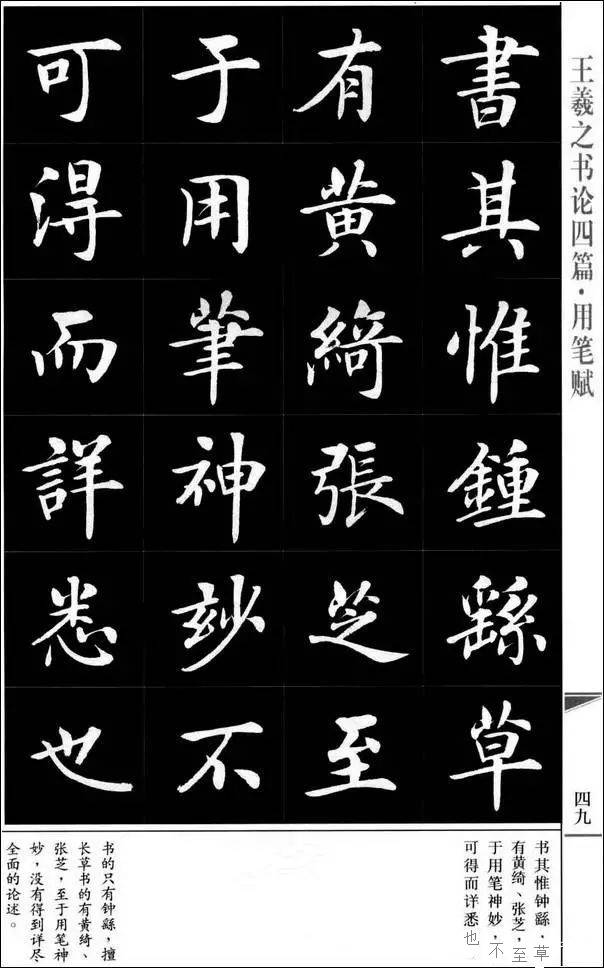 王羲之书论四篇·用笔赋
書其惟鍾繇草
有黄綺張芝至
于用筆神玅不
可淂而詳悉也
四九
书其惟钟繇，草
有黄绮、张芝，至
于用笔神妙，不
可得而详悉也
书的只有钟繇，擅
长草书的有黄绮、
张芝，至于用笔神
妙，没有得到详尽
全面的论述。